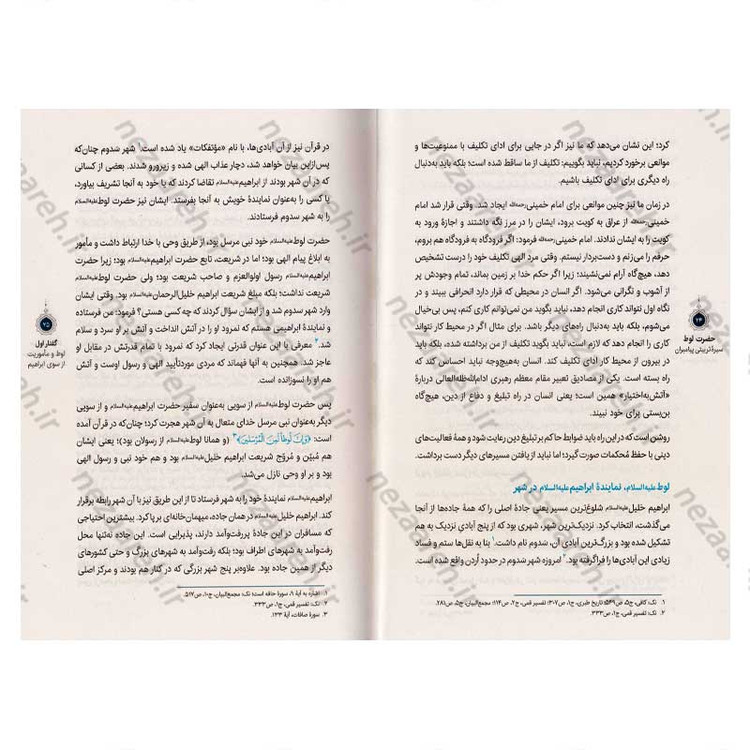 کرد؛ این نشان می‌دهد که ما نیز اگر در جایی برای ادای تکلیف با ممنوعیت‌ها و
موانعی برخورد کردیم، نباید بگوییم: تکلیف از ما ساقط شده است؛ بلکه باید به‌دنبال
راه دیگری برای ادای تکلیف باشیم.
در زمان ما نیز چنین موانعی برای امام خمینی ایجاد شد. وقتی قرار شد امام
خمینی از عراق به کویت برود، ایشان را در مرز نگه داشتند و اجازهٔ ورود به
کویت را به ایشان ندادند. امام خمینی فرمود: اگر فرودگاه به فرودگاه هم بروم،
حرفم را می‌زنم و دست‌بردار نیستم. وقتی مرد الهی تکلیف خود را درست تشخیص
دهد، هیچ‌گاه آرام نمی‌نشیند؛ زیرا اگر حکم خدا بر زمین بماند، تمام وجودش پر
از آشوب و نگرانی می‌شود. اگر انسان در محیطی که قرار دارد انحرافی ببیند و در
نگاه اول نتواند کاری انجام دهد، نباید بگوید من نمی‌توانم کاری کنم، پس بی‌خیال
می‌شوم، بلکه باید به‌دنبال راه‌های دیگر باشد. برای مثال اگر در محیط کار نتواند
کاری را انجام دهد که لازم است، نباید بگوید تکلیف از من برداشته شده، بلکه باید
در بیرون از محیط کار ادای تکلیف کند. انسان به‌هیچ‌وجه نباید احساس کند که
راه بسته است. یکی از مصادیق تعبیر مقام معظم رهبری ادام‌الله‌ظله‌العالی دربارهٔ
«آتش‌به‌اختیار» همین است؛ یعنی انسان در راه تبلیغ و دفاع از دین، هیچ‌گاه
بن‌بستی برای خود نبیند.
روشن است که در این راه باید ضوابط حاکم بر تبلیغ دین رعایت شود و همهٔ فعالیت‌های
دینی با حفظ محکمات صورت گیرد؛ اما نباید از یافتن مسیرهای دیگر دست برداشت.
لوط علیه‌السلام، نمایندهٔ ابراهیم علیه‌السلام در شهر
ابراهیم خلیل علیه‌السلام شلوغ‌ترین مسیر یعنی جادهٔ اصلی را که همهٔ جاده‌ها از آنجا
می‌گذشت، انتخاب کرد. نزدیک‌ترین شهر، شهری بود که از پنج آبادی نزدیک به هم
تشکیل شده بود و بزرگ‌ترین آبادی آن، سدوم نام داشت.۱ بنا به نقل‌ها ستم و فساد
زیادی این آبادی‌ها را فراگرفته بود.۲ امروزه شهر سدوم در حدود اُردن واقع شده است.
۱. نک: کافی، ج۵، ص۵۴۹؛ تاریخ طبری، ج۱، ص۳۰۷؛ تفسیر قمی، ج۲، ص۱۱۴؛ مجمع‌البیان، ج۵، ص۲۸۱.
۲. نک: تفسیر قمی، ج۱، ص۳۳۳.
۷۴
حضرت لوط
سیرهٔ تربیتی پیامبران
در قرآن نیز از آن آبادی‌ها، با نام «مؤتفکات» یاد شده است.۱ شهر سدوم چنان‌که
پس‌ازاین بیان خواهد شد، دچار عذاب الهی شده و زیرورو شدند. بعضی از کسانی
که در آن شهر بودند از ابراهیم علیه‌السلام تقاضا کردند که یا خود به آنجا تشریف بیاورد،
یا کسی را به‌عنوان نمایندهٔ خویش به آنجا بفرستد. ایشان نیز حضرت لوط علیه‌السلام
را به شهر سدوم فرستادند.
حضرت لوط علیه‌السلام خود نبی مرسل بود، از طریق وحی با خدا ارتباط داشت و مأمور
به ابلاغ پیام الهی بود؛ اما در شریعت، تابع حضرت ابراهیم علیه‌السلام بود؛ زیرا حضرت
ابراهیم علیه‌السلام رسول اولوالعزم و صاحب شریعت بود؛ ولی حضرت لوط علیه‌السلام
شریعت نداشت؛ بلکه مبلغ شریعت ابراهیم خلیل‌الرحمان علیه‌السلام بود. وقتی ایشان
وارد شهر سدوم شد و از ایشان سؤال کردند که چه کسی هستی؟ فرمود: من فرستاده
و نمایندهٔ ابراهیمی هستم که نمرود او را در آتش انداخت و آتش بر او سرد و سلام
شد.۲ معرفی با این عنوان قدرتی ایجاد کرد که نمرود با تمام قدرتش در مقابل او
عاجز شد. همچنین به آنها فهماند که مردی موردتأیید الهی و رسول اوست و آتش
هم او را نسوزانده است.
پس حضرت لوط علیه‌السلام از سویی به‌عنوان سفیر حضرت ابراهیم علیه‌السلام و از سویی
دیگر به‌عنوان نبی مرسل خدای متعال به آن شهر هجرت کرد؛ چنان‌که در قرآن آمده
است: ﴿وَإِنَّ لُوطًا لَمِنَ الْمُرْسَلِينَ﴾۳ (و همانا لوط علیه‌السلام از رسولان بود)؛ یعنی ایشان
هم مُبیّن و مُروّج شریعت ابراهیم علیه‌السلام بود و هم خود نبی و رسول الهی
بود و بر او وحی نازل می‌شد.
ابراهیم علیه‌السلام نمایندهٔ خود را به شهر فرستاد تا از این طریق نیز با آن شهر رابطه برقرار
کند. ابراهیم خلیل علیه‌السلام در همان جاده، میهمان‌خانه‌ای برپا کرد. بیشترین احتیاجی
که مسافران در این جادهٔ پررفت‌وآمد دارند، پذیرایی است. این جاده نه‌تنها محل
رفت‌وآمد به شهرهای اطراف بود؛ بلکه رفت‌وآمد به شهرهای بزرگ و حتی کشورهای
دیگر از همین جاده بود. علاوه‌بر پنج شهر بزرگی که در کنار هم بودند و مرکز اصلی
۱. اشاره به آیهٔ ۹، سورهٔ حاقه است؛ نک: مجمع‌البیان، ج۱۰، ص۵۱۷.
۲. نک: تفسیر قمی، ج۱، ص۳۳۳.
۳. سورهٔ صافات، آیهٔ ۱۳۳.
۷۵
گفتار اول
لوط و مأموریت
از سوی ابراهیم
nezaareh.ir